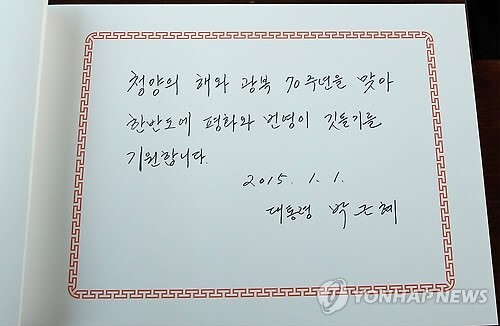 청양의 해와 광복 70주년을 맞아
한반도에 평화와 번영이 깃들기를
기원합니다.
2015. 1. 1.
대통령 박근혜
YONHAP NEWS